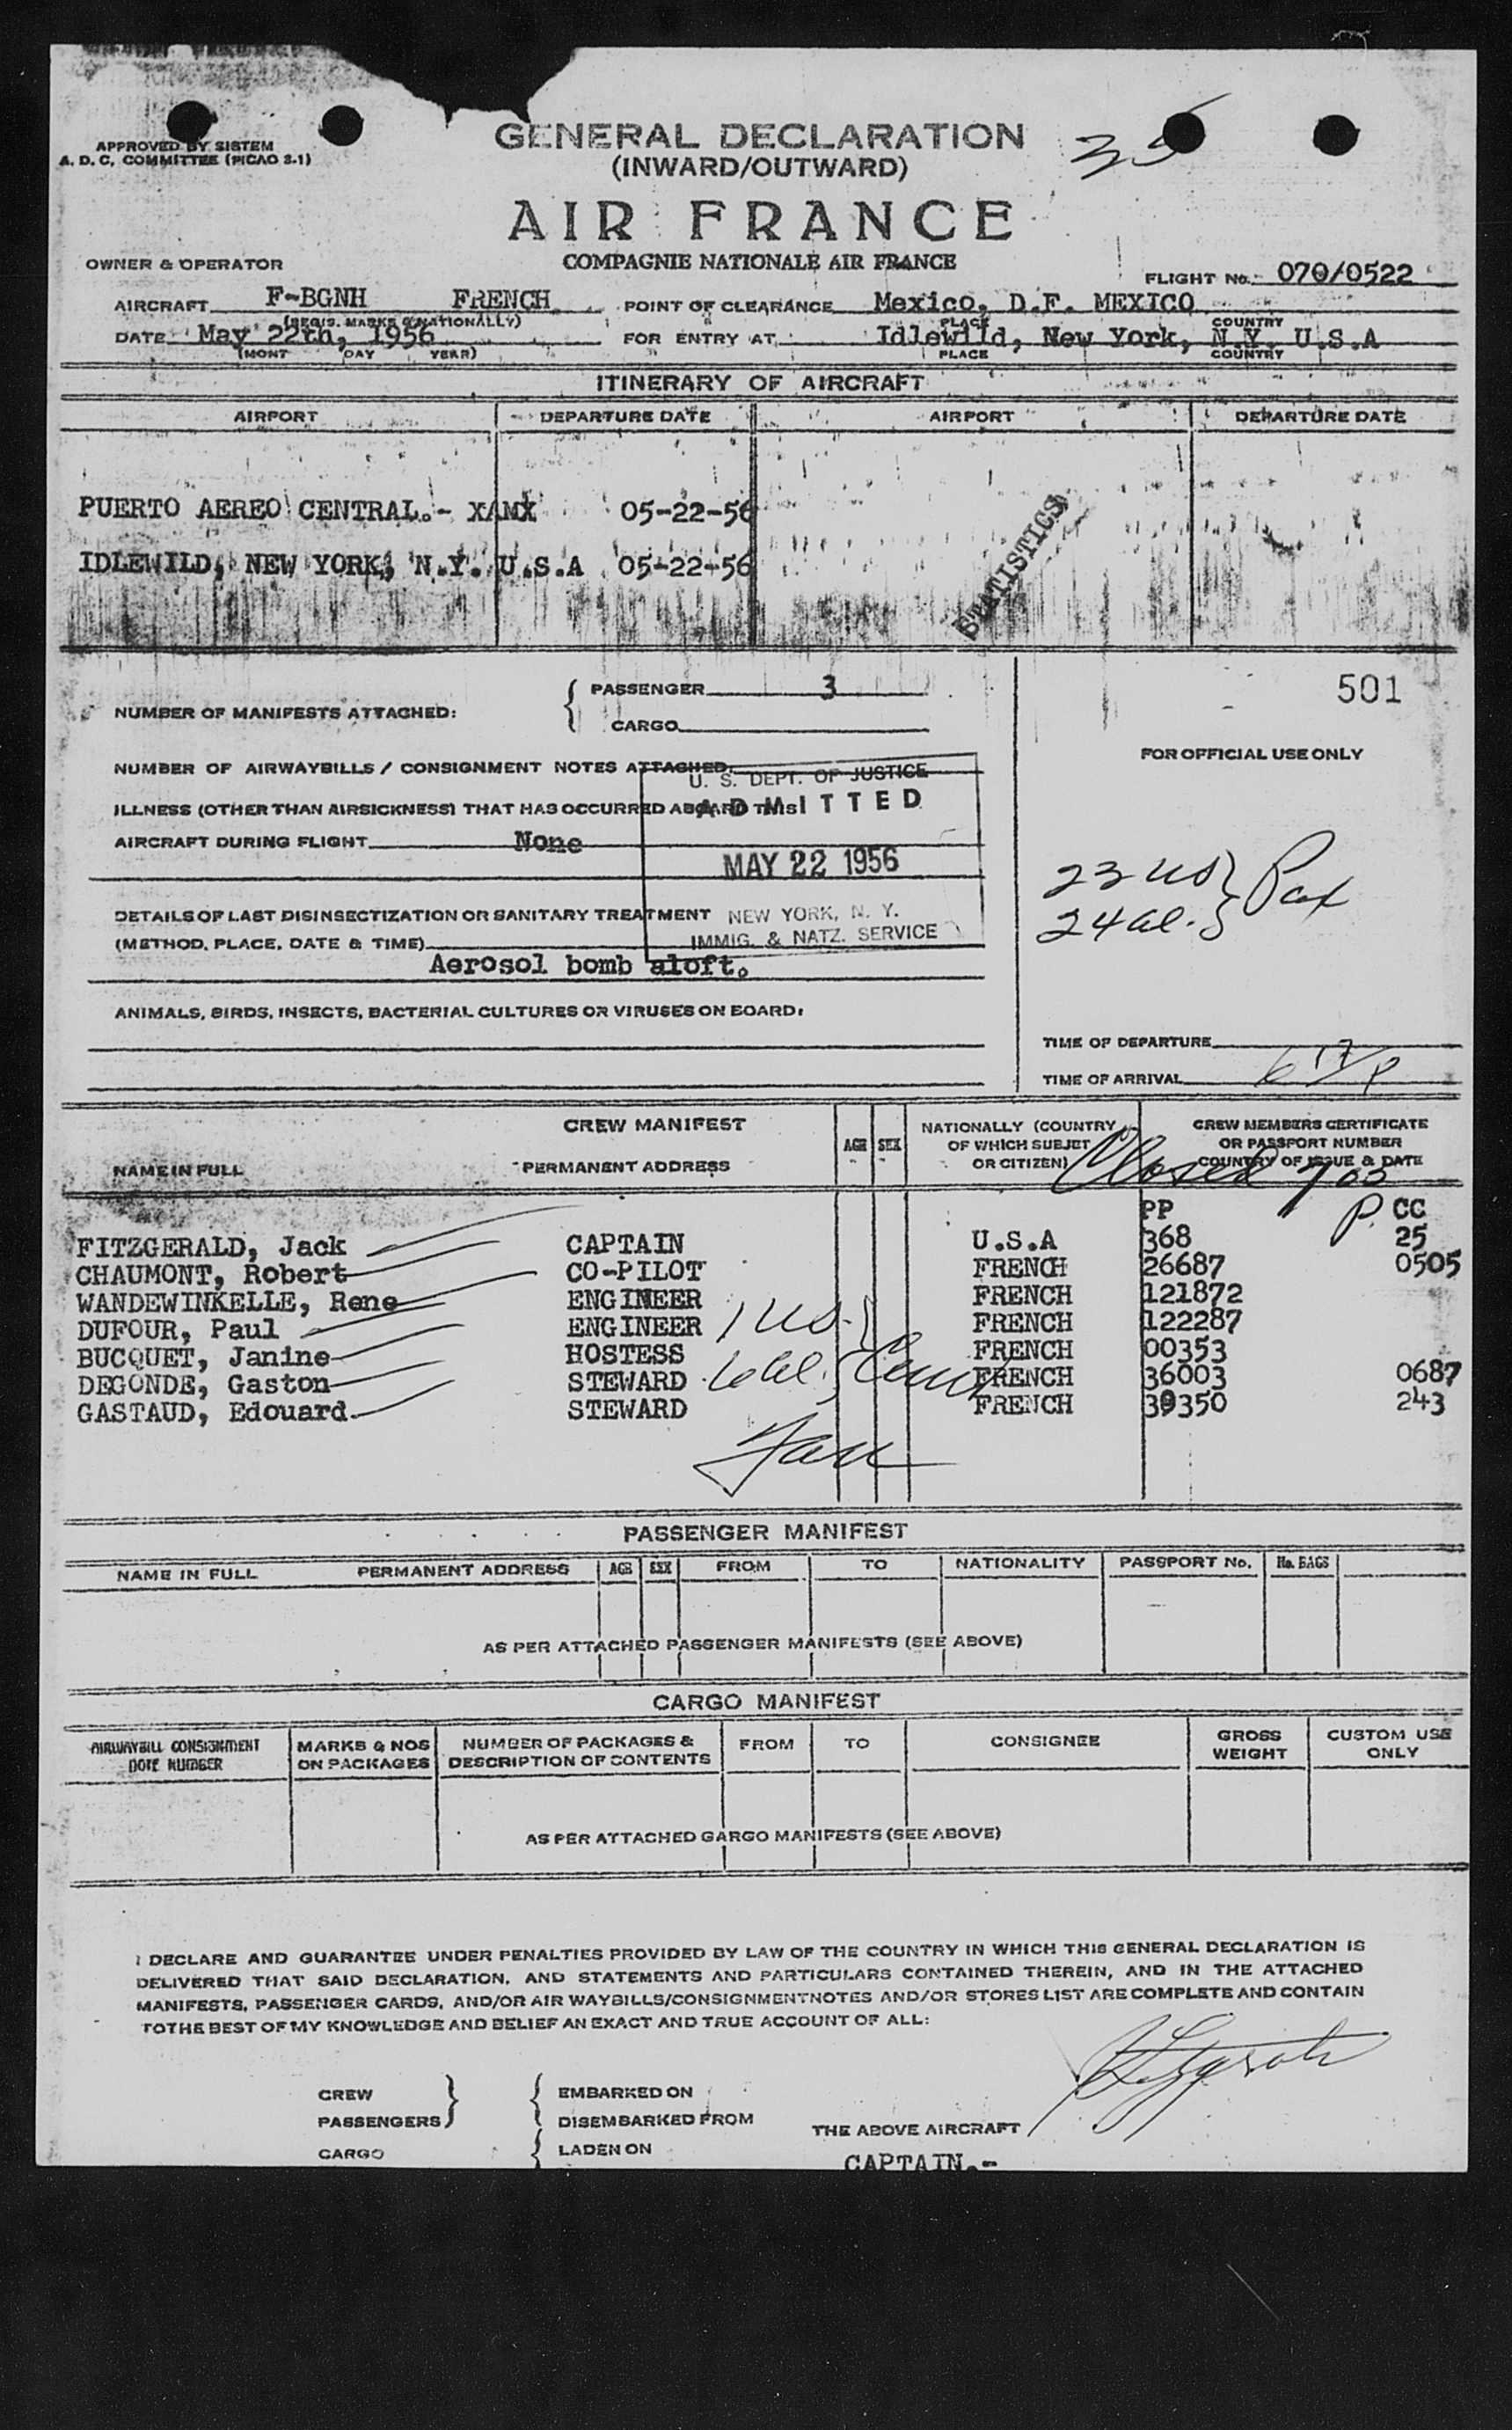 APPROVED BY SISTEM
A. D. C. COMMITTEE (PICAO 2-1)
GENERAL DECLARATION
(INWARD/OUTWARD)
35
AIR FRANCE
COMPAGNIE NATIONALE AIR FRANCE
OWNER & OPERATOR
FLIGHT No. 070/0522
AIRCRAFT F-BGNH FRENCH POINT OF CLEARANCE Mexico, D.F. MEXICO
(REGIS. MARKS & NATIONALLY) PLACE COUNTRY
DATE May 22th, 1956 FOR ENTRY AT Idlewild, New York, N.Y. U.S.A
(MONT DAY YEAR) PLACE COUNTRY
ITINERARY OF AIRCRAFT
AIRPORT DEPARTURE DATE AIRPORT DEPARTURE DATE
PUERTO AEREO CENTRAL.- XAMX 05-22-56
IDLEWILD, NEW YORK, N.Y. U.S.A 05-22-56
STATISTICS
NUMBER OF MANIFESTS ATTACHED:
PASSENGER 3
CARGO
501
FOR OFFICIAL USE ONLY
NUMBER OF AIRWAYBILLS / CONSIGNMENT NOTES ATTACHED.
ILLNESS (OTHER THAN AIRSICKNESS) THAT HAS OCCURRED ABOARD THIS
AIRCRAFT DURING FLIGHT None
U. S. DEPT. OF JUSTICE
ADMITTED
MAY 22 1956
NEW YORK, N. Y.
IMMIG. & NATZ. SERVICE
23 US } Pax
24 al.
DETAILS OF LAST DISINSECTIZATION OR SANITARY TREATMENT
(METHOD, PLACE, DATE & TIME)
Aerosol bomb aloft.
ANIMALS, BIRDS, INSECTS, BACTERIAL CULTURES OR VIRUSES ON BOARD:
TIME OF DEPARTURE
TIME OF ARRIVAL 6 17/P
CREW MANIFEST
NAME IN FULL PERMANENT ADDRESS AGE SEX NATIONALLY (COUNTRY OF WHICH SUBJET OR CITIZEN) CREW MEMBERS CERTIFICATE OR PASSPORT NUMBER COUNTRY OF ISSUE & DATE
Closed 7 00 P.
PP CC
FITZGERALD, Jack CAPTAIN U.S.A 368 25
CHAUMONT, Robert CO-PILOT FRENCH 26687 0505
WANDEWINKELLE, Rene ENGINEER FRENCH 121872
DUFOUR, Paul ENGINEER FRENCH 122287
BUCQUET, Janine HOSTESS FRENCH 00353
DEGONDE, Gaston STEWARD FRENCH 36003 0687
GASTAUD, Edouard STEWARD FRENCH 39350 243
1 US. } Crew
6 al.
PASSENGER MANIFEST
NAME IN FULL PERMANENT ADDRESS AGE SEX FROM TO NATIONALITY PASSPORT No. No. BAGS
AS PER ATTACHED PASSENGER MANIFESTS (SEE ABOVE)
CARGO MANIFEST
AIRWAYBILL CONSIGNMENT NOTE NUMBER MARKS & NOS ON PACKAGES NUMBER OF PACKAGES & DESCRIPTION OF CONTENTS FROM TO CONSIGNEE GROSS WEIGHT CUSTOM USE ONLY
AS PER ATTACHED GARGO MANIFESTS (SEE ABOVE)
I DECLARE AND GUARANTEE UNDER PENALTIES PROVIDED BY LAW OF THE COUNTRY IN WHICH THIS GENERAL DECLARATION IS
DELIVERED THAT SAID DECLARATION, AND STATEMENTS AND PARTICULARS CONTAINED THEREIN, AND IN THE ATTACHED
MANIFESTS, PASSENGER CARDS, AND/OR AIR WAYBILLS/CONSIGNMENTNOTES AND/OR STORES LIST ARE COMPLETE AND CONTAIN
TOTHE BEST OF MY KNOWLEDGE AND BELIEF AN EXACT AND TRUE ACCOUNT OF ALL:
CREW EMBARKED ON
PASSENGERS DISEMBARKED FROM
THE ABOVE AIRCRAFT
CARGO LADEN ON
CAPTAIN.-